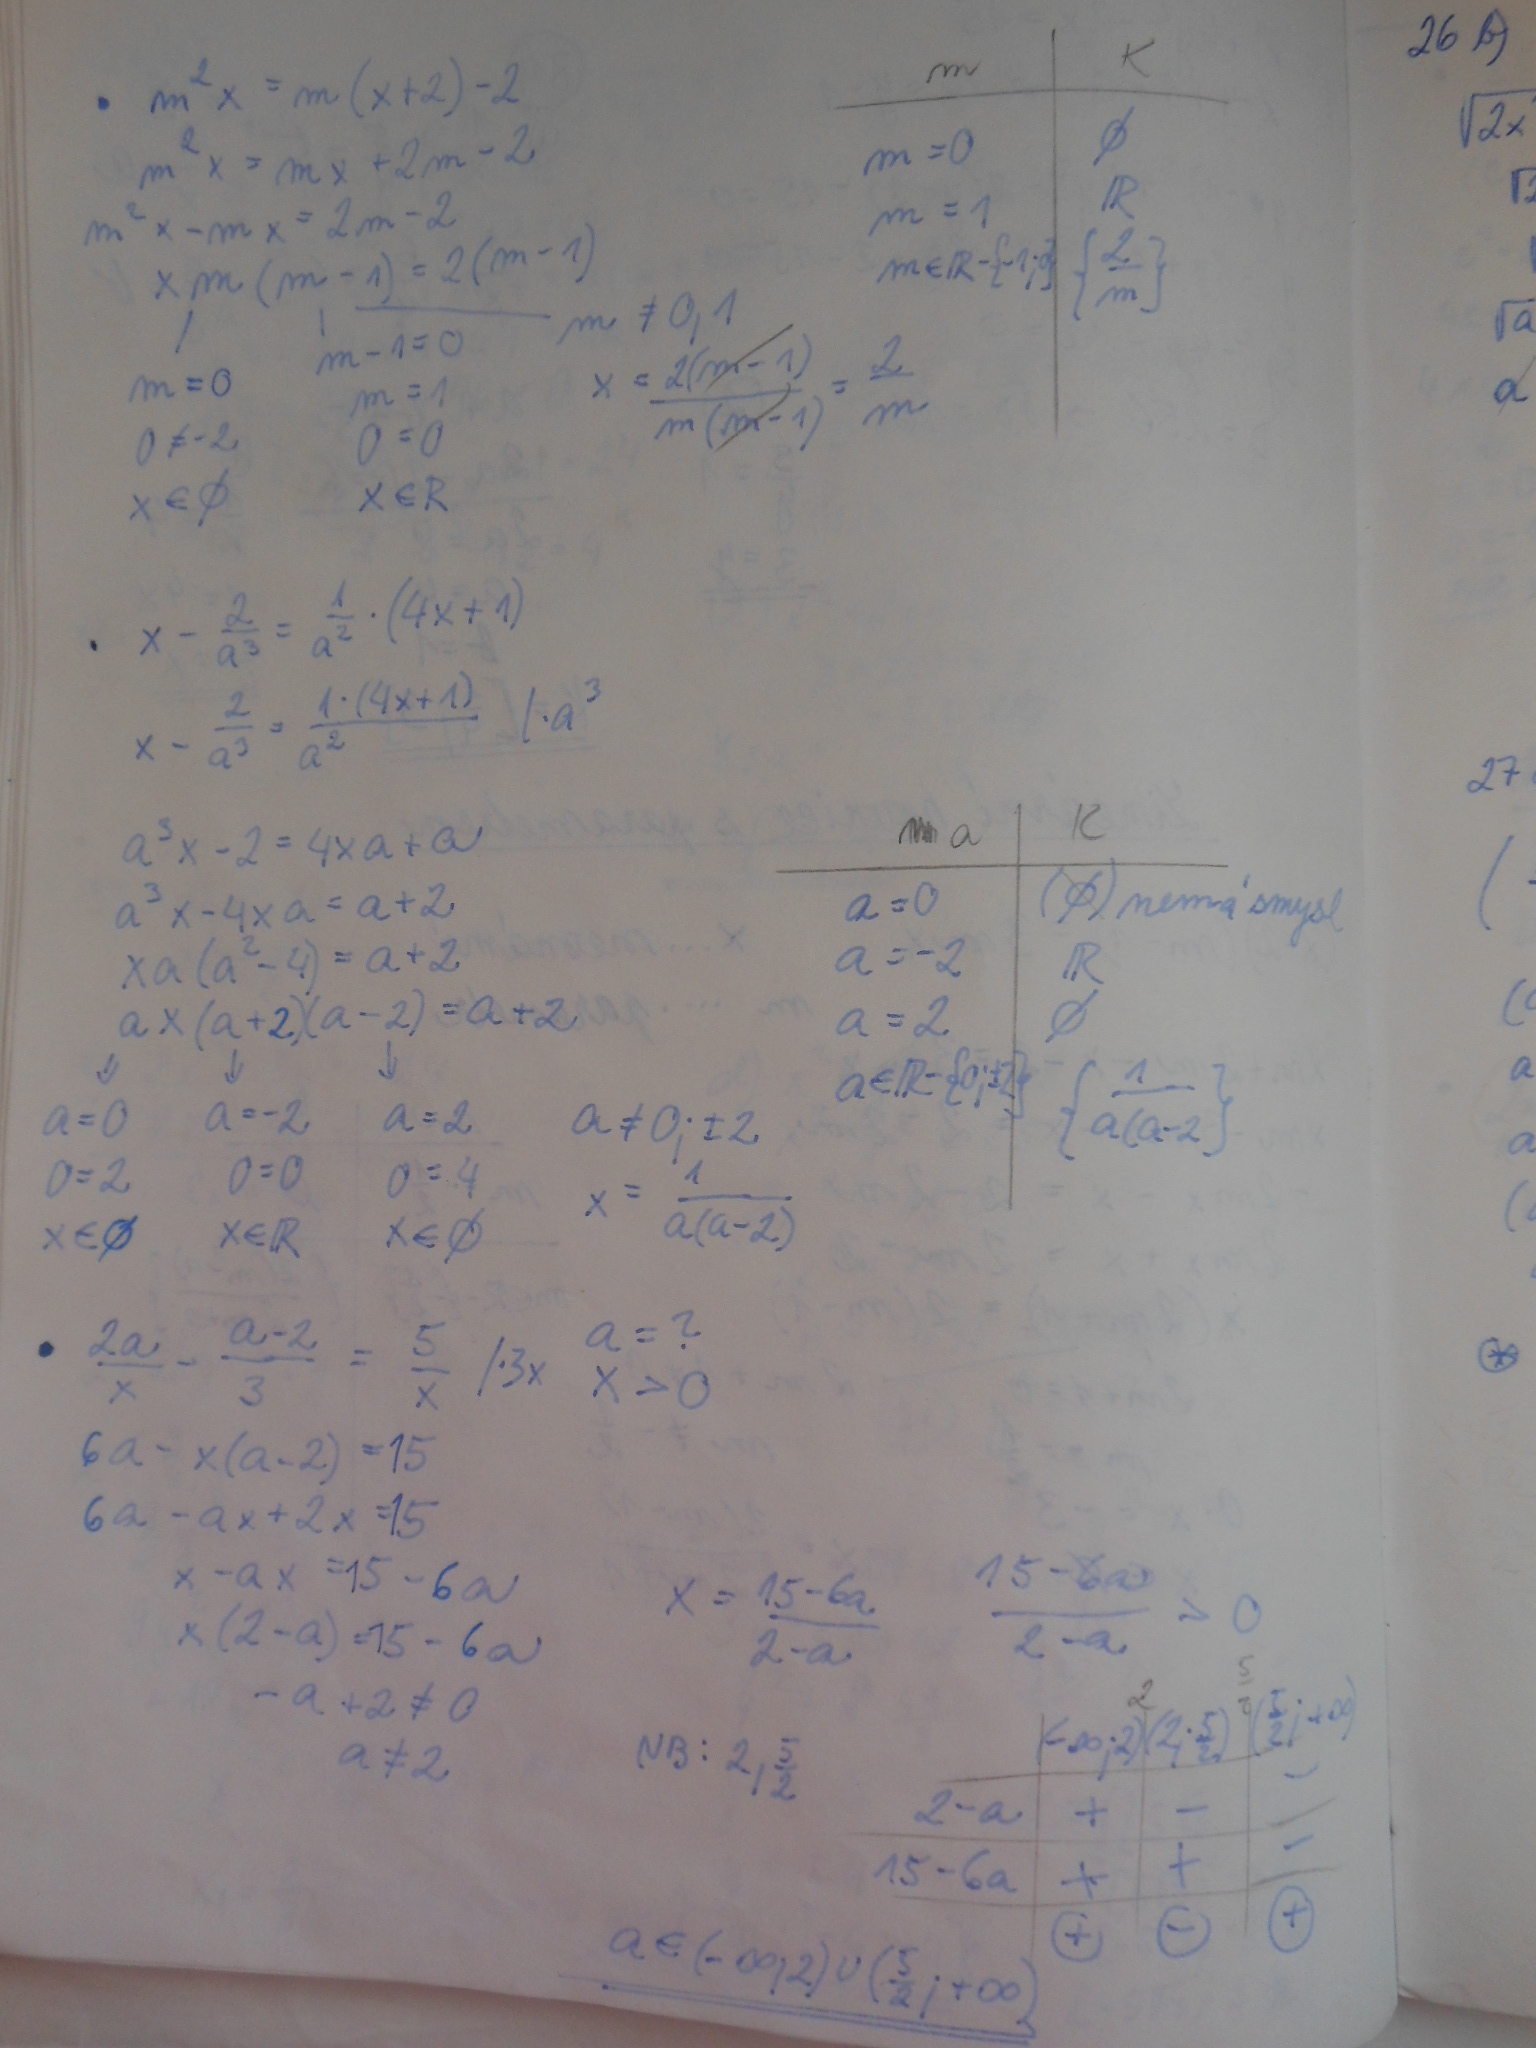 • m²x = m(x+2)-2
m²x = mx + 2m - 2
m²x - mx = 2m - 2
x m (m - 1) = 2(m - 1)
m = 0
0 ≠ -2
x ∈ ∅
m - 1 = 0
m = 1
0 = 0
x ∈ R
m ≠ 0, 1
x = 2(m-1)/m(m-1) = 2/m
m | K
m = 0 | ∅
m = 1 | ℝ
m ∈ ℝ - {-1; 0} | {2/m}
• x - 2/a³ = 1/a² · (4x+1)
x - 2/a³ = 1·(4x+1)/a² /·a³
a³x - 2 = 4xa + a
a³x - 4xa = a + 2
xa(a² - 4) = a + 2
ax(a+2)(a-2) = a+2
a = 0
0 = 2
x ∈ ∅
a = -2
0 = 0
x ∈ ℝ
a = 2
0 = 4
x ∈ ∅
a ≠ 0; ±2
x = 1/a(a-2)
a | K
a = 0 | (∅) nemá smysl
a = -2 | ℝ
a = 2 | ∅
a ∈ ℝ - {0; ±2} | {1/a(a-2}
• 2a/x - a-2/3 = 5/x /·3x
a = ?
x > 0
6a - x(a-2) = 15
6a - ax + 2x = 15
x - ax = 15 - 6a
x(2-a) = 15 - 6a
-a + 2 ≠ 0
a ≠ 2
x = 15-6a/2-a
15-6a/2-a > 0
NB: 2, 5/2
2 5/2
(-∞; 2) (2; 5/2) (5/2; +∞)
2-a | + | - | -
15-6a | + | + | -
+ - +
a ∈ (-∞, 2) ∪ (5/2; +∞)
26 b)
27